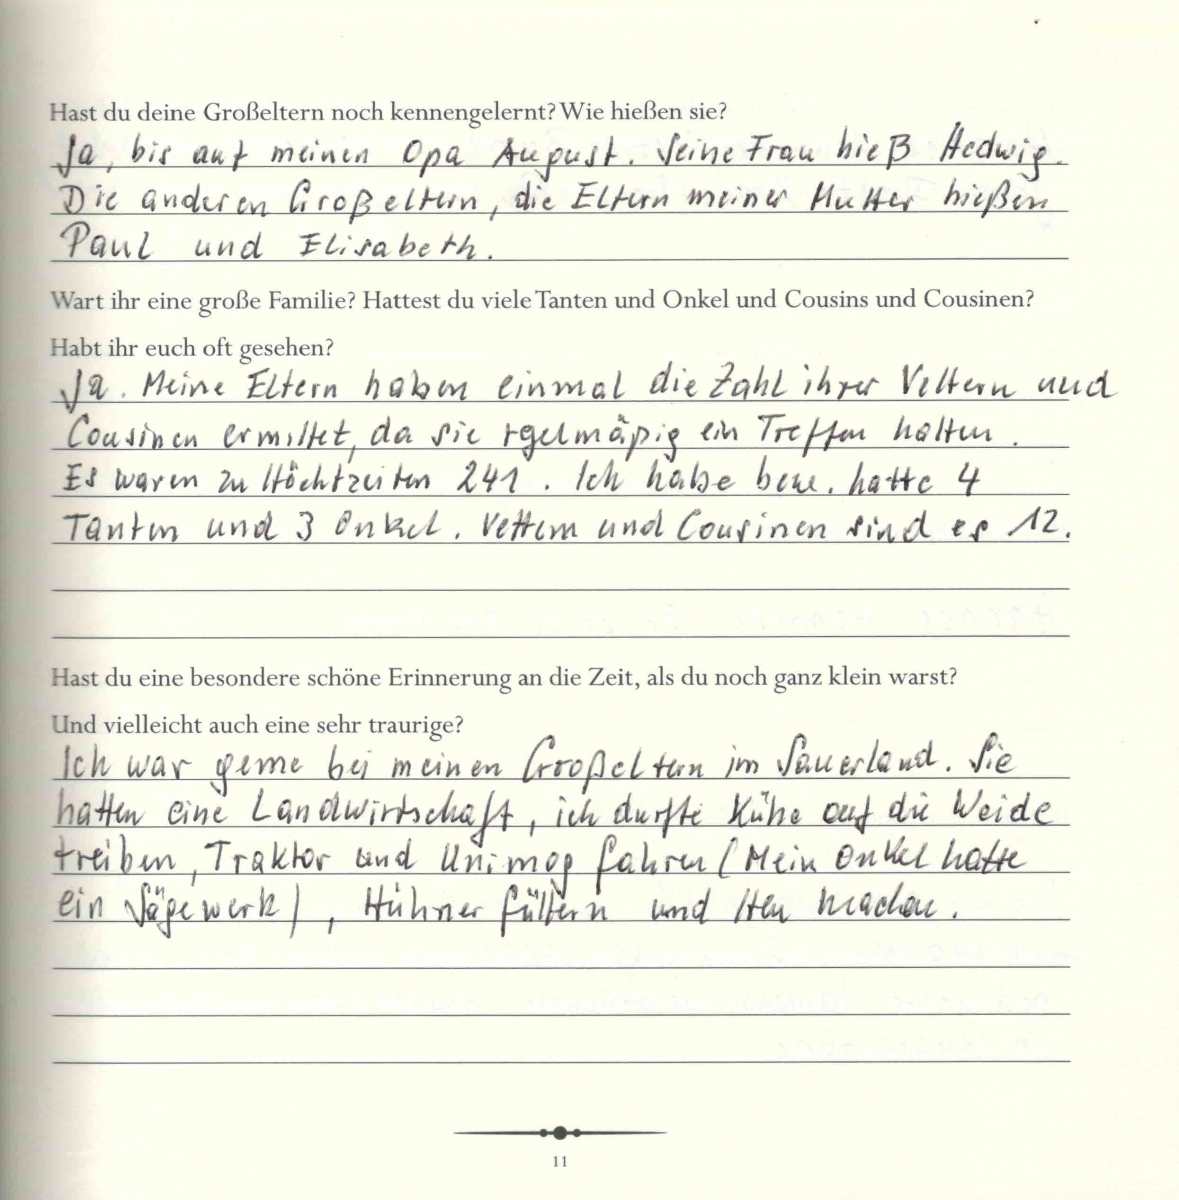 Hast du deine Großeltern noch kennengelernt? Wie hießen sie?
Ja, bis auf meinen Opa August. Seine Frau hieß Hedwig.
Die anderen Großeltern, die Eltern meiner Mutter hießen
Paul und Elisabeth.
Wart ihr eine große Familie? Hattest du viele Tanten und Onkel und Cousins und Cousinen?
Habt ihr euch oft gesehen?
Ja. Meine Eltern haben einmal die Zahl ihrer Vettern und
Cousinen ermittet, da sie rgelmäßig ein Treffen halten.
Es waren zu Höchtzeiten 241. Ich habe bzw. hatte 4
Tanten und 3 Onkel. Vettern und Cousinen sind es 12.
Hast du eine besondere schöne Erinnerung an die Zeit, als du noch ganz klein warst?
Und vielleicht auch eine sehr traurige?
Ich war gerne bei meinen Großeltern im Sauerland. Sie
hatten eine Landwirtschaft, ich durfte Kühe auf die Weide
treiben, Traktor und Unimog fahren (Mein Onkel hatte
ein Sägewerk), Hühner füttern und Heu machen.
11